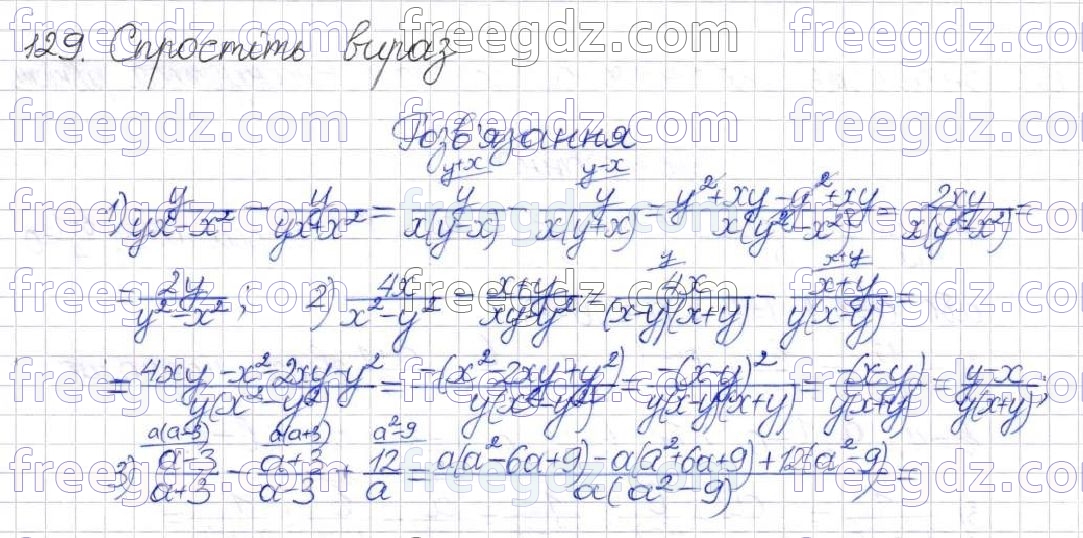 129. Спростіть вираз
Розв'язання
1) y/(yx-x²) - y/(yx+x²) = y/(x(y-x)) (y+x) - y/(x(y+x)) (y-x) = (y²+xy-y²+xy)/(x(y²-x²)) = 2xy/(x(y²-x²)) =
= 2y/(y²-x²); 2) 4x/(x²-y²) - (x+y)/(xy-y²) = 4x/((x-y)(x+y)) (y) - (x+y)/(y(x-y)) (x+y) =
= (4xy-x²-2xy-y²)/(y(x²-y²)) = -(x²-2xy+y²)/(y(x²-y²)) = -(x-y)²/(y(x-y)(x+y)) = -(x-y)/(y(x+y)) = (y-x)/(y(x+y));
3) (a-3)/(a+3) (a(a-3)) - (a+3)/(a-3) (a(a+3)) + 12/a (a²-9) = (a(a²-6a+9)-a(a²+6a+9)+12(a²-9))/(a(a²-9)) =
freegdz.com